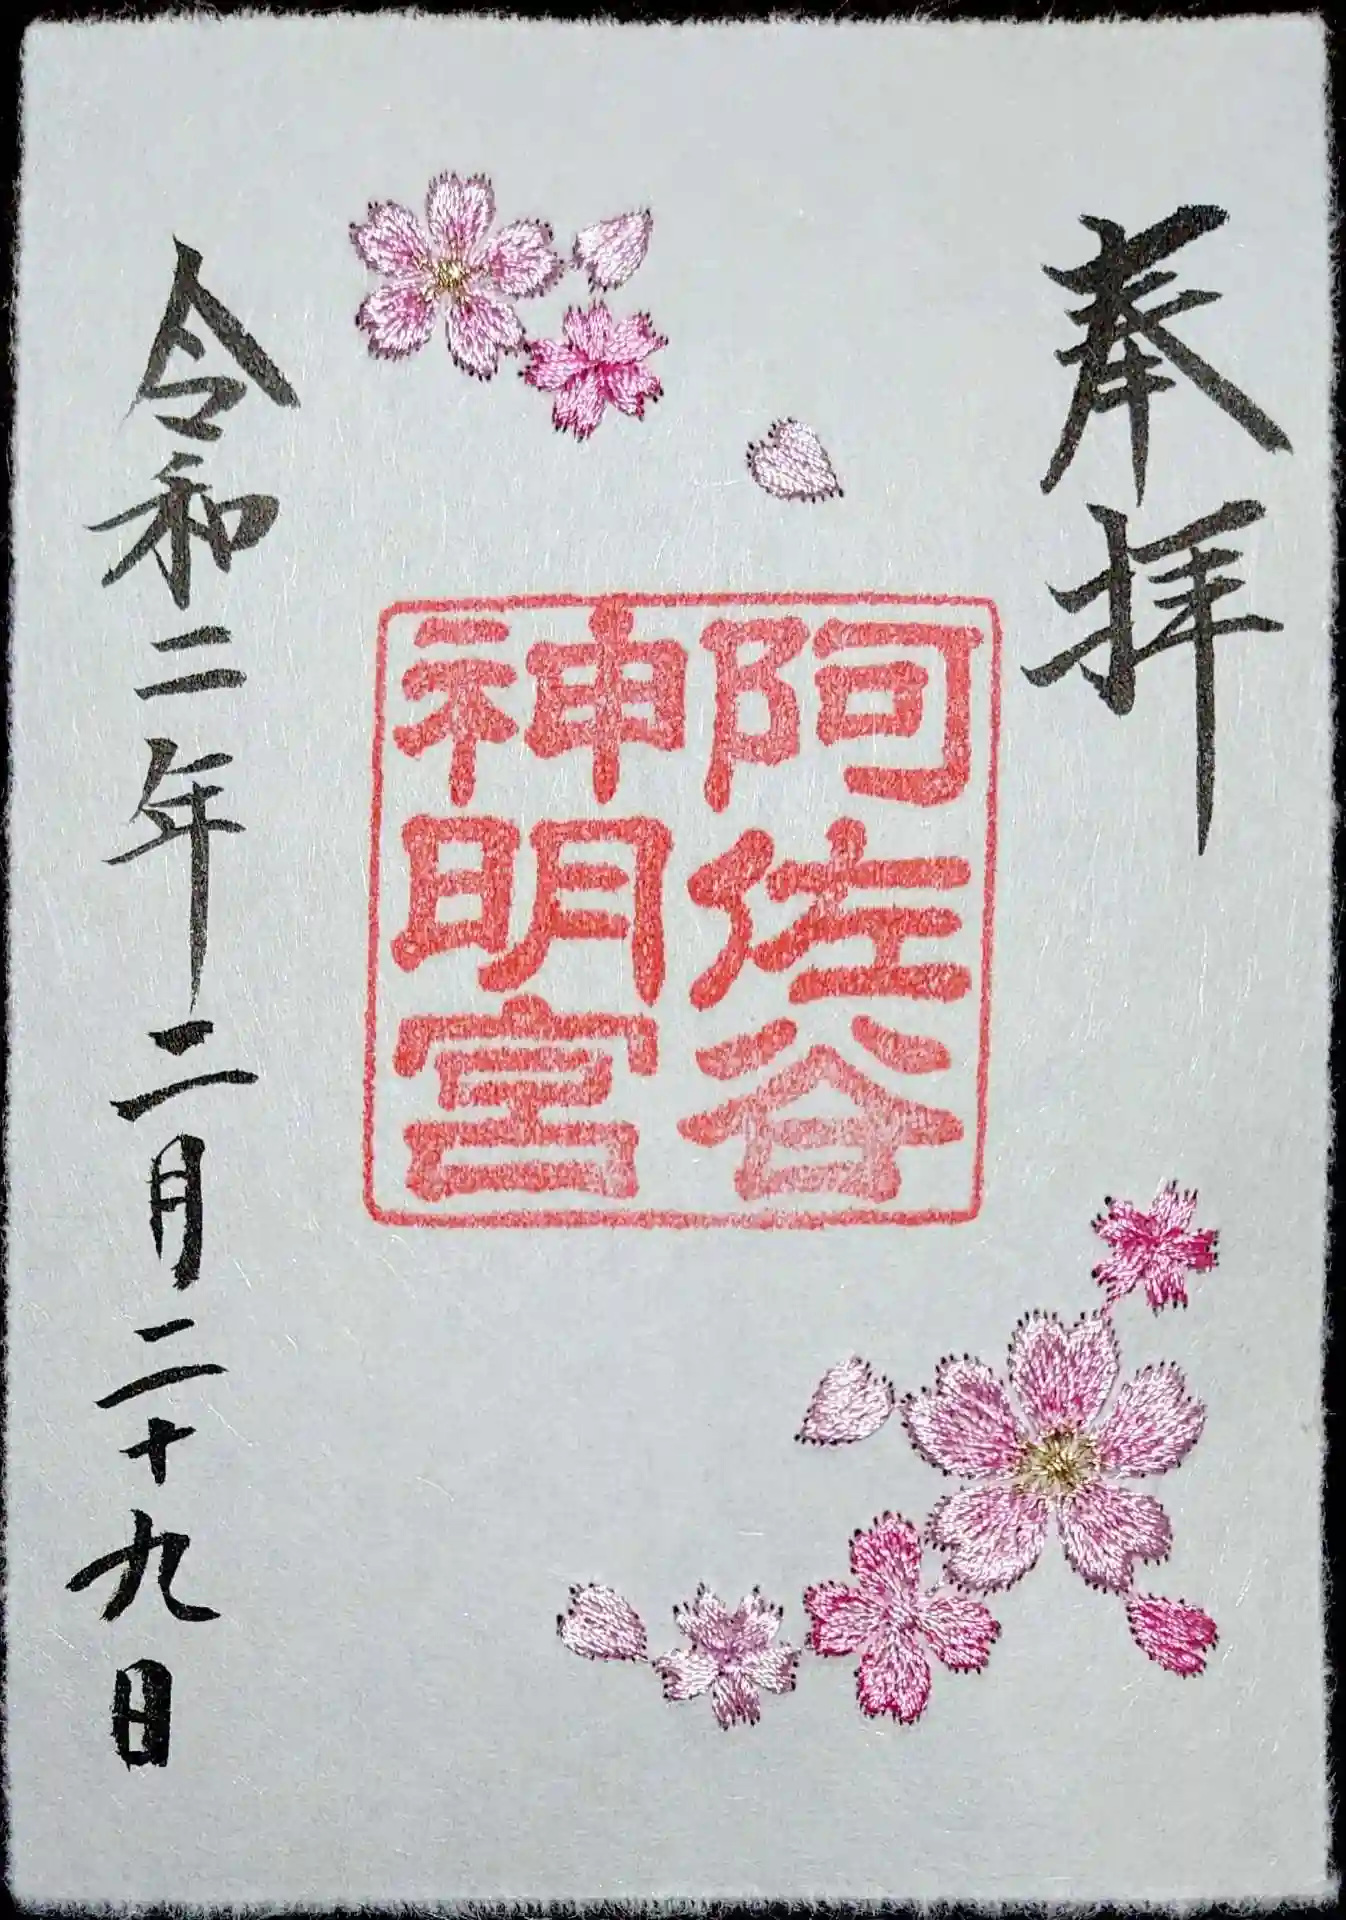 奉拝
阿佐谷
神明宮
令和二年二月二十九日